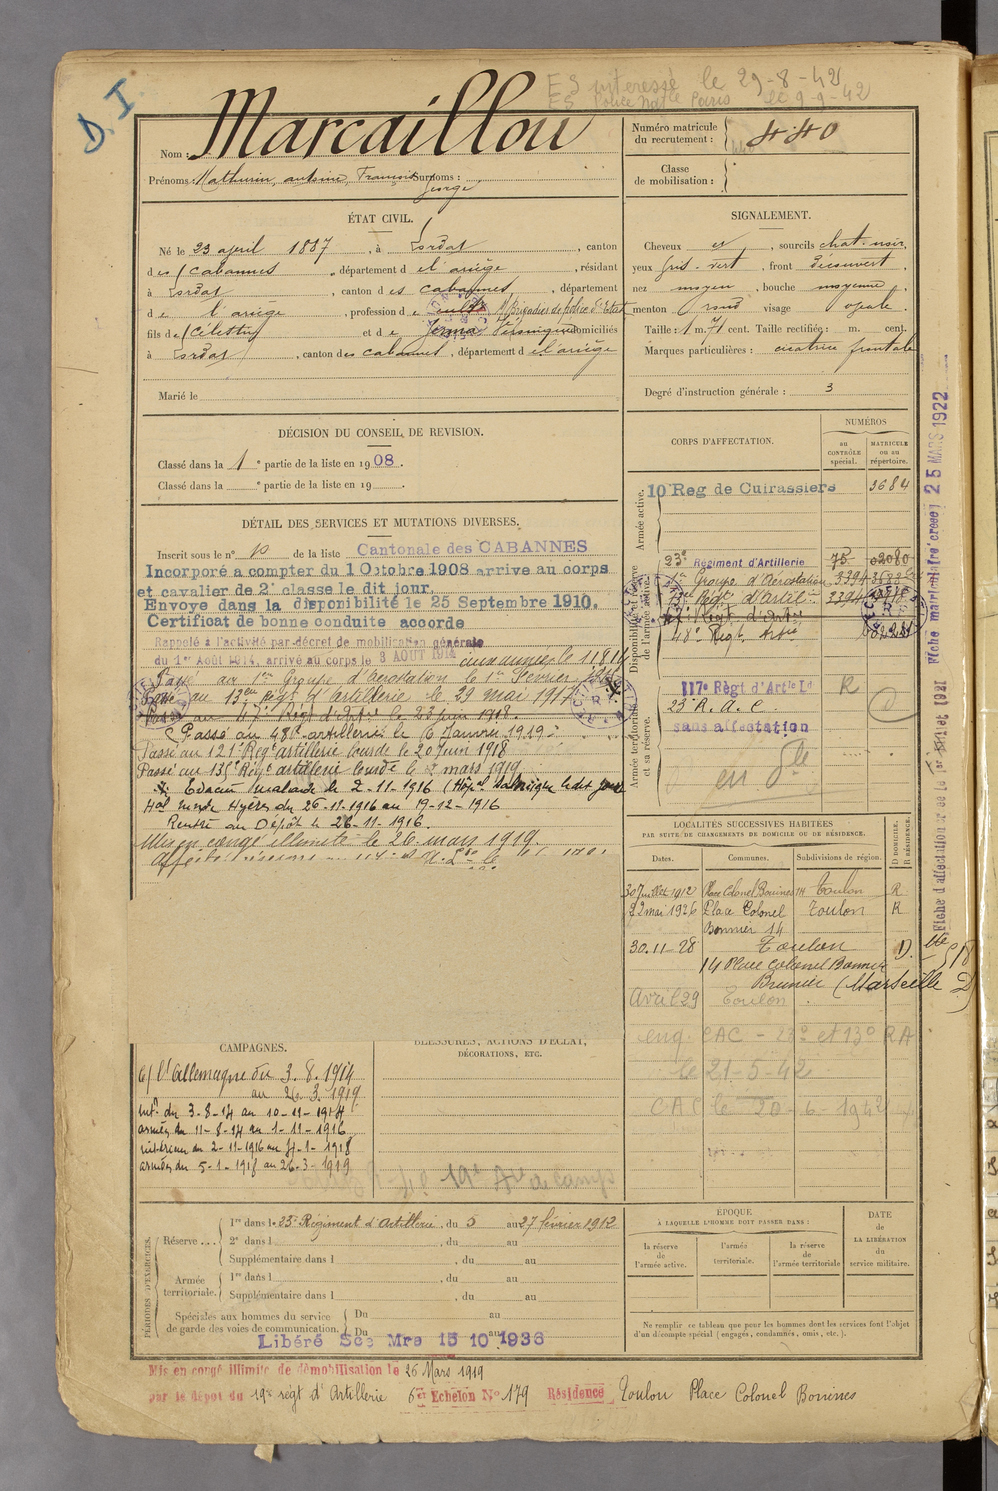 D. I.
ES interessé le 29-8-42
ES Police Nat^le Paris le 9-9-42
Nom : Marcaillou
Prénoms : Mathurin, antoine, François Surnoms :
George
Numéro matricule
du recrutement : 440
Classe
de mobilisation :
ÉTAT CIVIL.
Né le 23 april 1887, à Lordat, canton
d es Cabannes, département d e l'ariège, résidant
à Lordat, canton d es cabannes, département
d e l'ariège, profession d e cult^r Brigadier de police d'Etat
fils de Célestin et d e Véronique domiciliés
à Lordat, canton d es cabannes, département d e l'ariège
Marié le
SIGNALEMENT.
Cheveux et, sourcils chat. noir,
yeux gris-vert, front découvert,
nez moyen, bouche moyenne,
menton rond visage ovale.
Taille : 1 m. 71 cent. Taille rectifiée : m. cent.
Marques particulières : cicatrice frontale
Degré d'instruction générale : 3
DÉCISION DU CONSEIL DE REVISION.
Classé dans la 1^e partie de la liste en 1908.
Classé dans la ^e partie de la liste en 19 .
DÉTAIL DES SERVICES ET MUTATIONS DIVERSES.
Inscrit sous le n° 10 de la liste Cantonale des CABANNES
Incorporé a compter du 1 Octobre 1908 arrive au corps
et cavalier de 2^e classe le dit jour.
Envoye dans la disponibilité le 25 Septembre 1910.
Certificat de bonne conduite accorde
Rappelé à l'activité par décret de mobilisation générale
du 1^er Août 1914, arrivé au corps le 3 AOUT 1914 aux armées le 11 8 14
Passé au 1^er Groupe d'Aérostation le 1^er Fevrier
Passé au 13^eme Régt d'artillerie le 29 mai 1917
Passé au 47^e Régt d'Art^ie le 23 juin 1918.
Passé au 48^e artillerie le 6 Janvier 1919
Passé au 121^e Rég^t artillerie lourde le 20 Juin 1918
Passé au 135^e Rég^t artillerie lourde le 2 mars 1919
Evacué malade le 2-11-1916 (Hôp^al Salonique ledit jour
H^al Hyères du 26-11-1916 au 19-12-1916
Rentré au Dépôt le 26-11-1916.
Mis en congé illimité le 26 mars 1919.
CORPS D'AFFECTATION.
NUMÉROS
au
CONTRÔLE
spécial.
MATRICULE
ou au
répertoire.
Armée active.
10 Reg de Cuirassiers 3684
Disponibilité et réserve
de l'armée active.
23^e Régiment d'Artillerie 75 02080
1^er Groupe d'Aérostation 3394
Rég^t d'artil^ie 3394
47^e Régt d'art^ie
48^e Régt Art^ie
Armée territoriale
et sa réserve.
117^e Règt d'Art^ie L^d R
23 R. A. C.
sans affectation
en d^le
Fiche d'affectation créée le 1^er Juillet 1921 Fiche matriculaire créée 25 MARS 1922
LOCALITÉS SUCCESSIVES HABITÉES
PAR SUITE DE CHANGEMENTS DE DOMICILE OU DE RÉSIDENCE.
Dates.
Communes.
Subdivisions de région.
D DOMICILE.
R RÉSIDENCE.
30 Juillet 1912 Place Colonel Bonnier 14 Toulon R
22 mai 1926 Place Colonel Toulon R
Bonnier 14
30.11-28 Toulon D.
14 Place Colonel Bonnier
(Marseille D)
Avril 29 Toulon
enq. CAC - 23° et 13° RA
le 21-5-42
CAC le 20-6-1942
CAMPAGNES.
C/ l'Allemagne du 3.8.1914
au 26.3.1919
Int^r du 3-8-14 au 10-11-1914
armées du 11-8-14 au 1-11-1916
intérieur du 2-11-1916 au 4-1-1918
armées du 5-1-1918 au 26-3-1919
BLESSURES, ACTIONS D'ÉCLAT,
DÉCORATIONS, ETC.
PÉRIODES D'EXERCICES.
Réserve ...
1^re dans l e 23^e Régiment d'Artillerie, du 5 au 27 février 1912
2^e dans l , du au
Supplémentaire dans l , du au
Armée
territoriale.
1^re dans l , du au
Supplémentaire dans l , du au
Spéciales aux hommes du service
de garde des voies de communication.
Du au
Du au
Libéré Sce Mre 15 10 1936
ÉPOQUE
À LAQUELLE L'HOMME DOIT PASSER DANS :
la réserve
de
l'armée active.
l'armée
territoriale.
la réserve
de
l'armée territoriale
DATE
de
LA LIBÉRATION
du
service militaire.
Ne remplir ce tableau que pour les hommes dont les services font l'objet
d'un décompte spécial (engagés, condamnés, omis, etc.).
Mis en congé illimité de démobilisation le 26 Mars 1919
par le dépôt du 19^e régt d'Artillerie 6^e Echelon N° 179 Résidence Toulon Place Colonel Bonnier